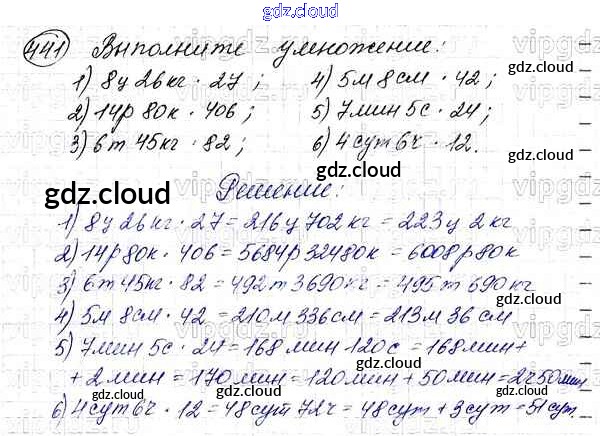 gdz.cloud
441 Выполните умножение:
1) 8ц 26кг · 27; 4) 5м 8см · 42;
2) 14р 80к · 406; 5) 7мин 5с · 24;
3) 6т 45кг · 82; 6) 4сут 6ч · 12.
gdz.cloud
gdz.cloud
gdz.cloud
Решение:
gdz.cloud
1) 8ц 26кг · 27 = 216ц 702кг = 223ц 2кг
2) 14р 80к · 406 = 5684р 32480к = 6008р 80к
gdz.cloud
3) 6т 45кг · 82 = 492т 3690кг = 495т 690кг
gdz.cloud
4) 5м 8см · 42 = 210м 336см = 213м 36см
gdz.cloud
5) 7мин 5с · 24 = 168мин 120с = 168мин +
+ 2мин = 170мин = 120мин + 50мин = 2ч 50мин
gdz.cloud
gdz.cloud
6) 4сут 6ч · 12 = 48сут 72ч = 48сут + 3сут = 51сут.
gdz.cloud